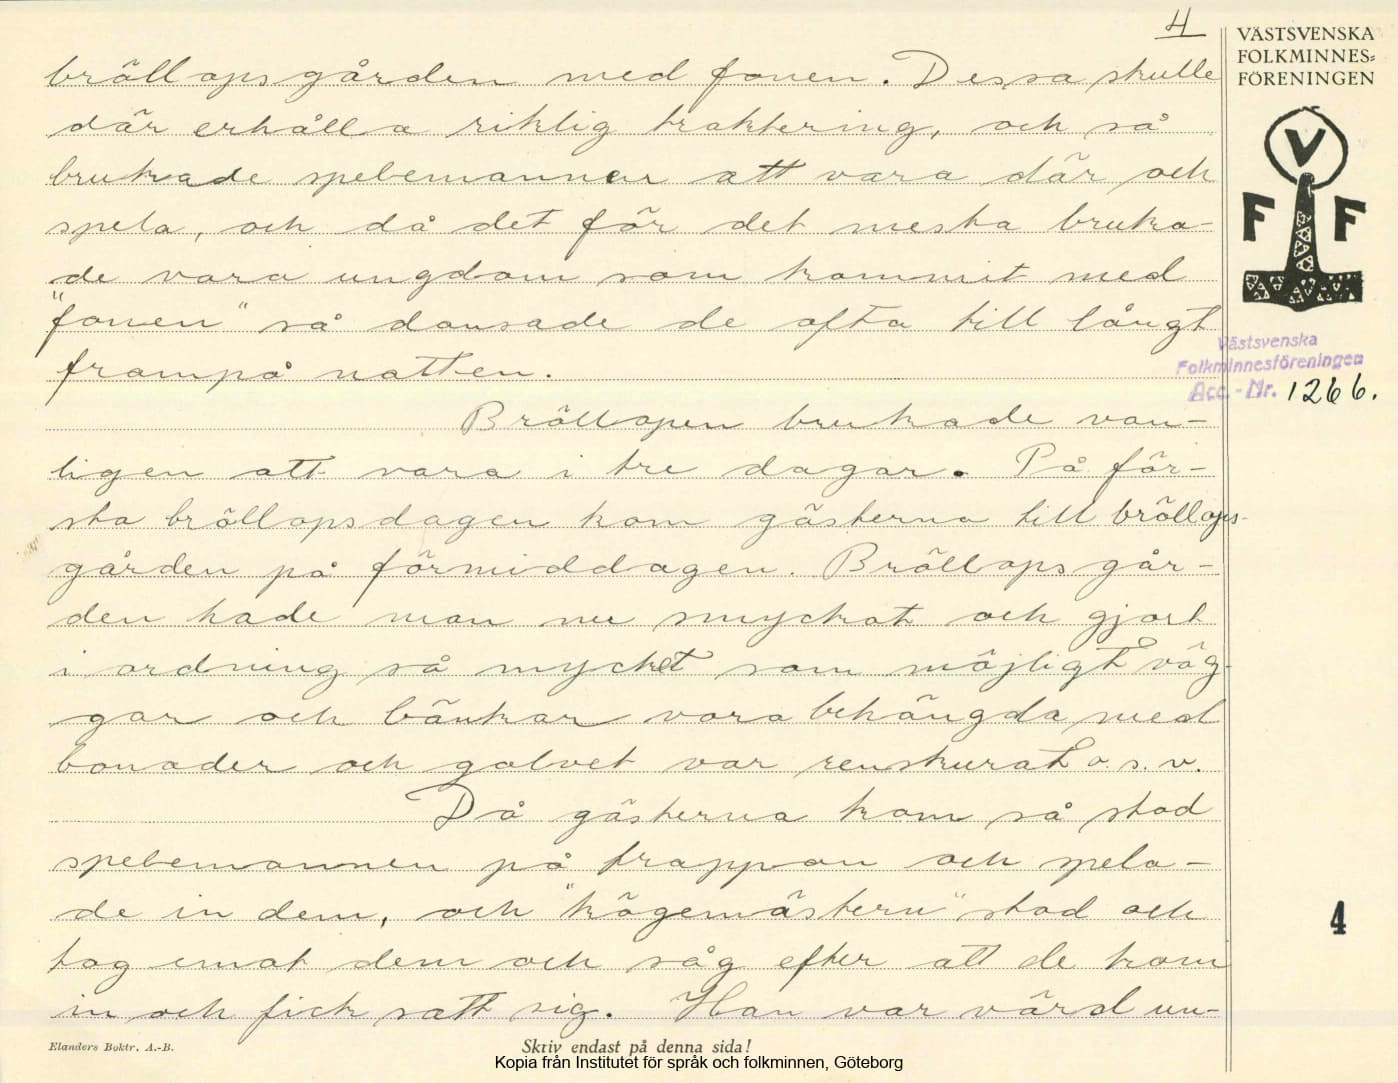 4
VÄSTSVENSKA
FOLKMINNES=
FÖRENINGEN
V
F F
bröllopsgården med fonen. Dessa skulle
där erhålla riklig traktering, och så
brukade spelemannen att vara där och
spela, och då det för det mesta bruka-
de vara ungdom som kommit med
"fonen" så dansade de ofta till långt
frampå natten.
Västsvenska
Folkminnesföreningen
Acc.-Nr. 1266.
Bröllopen brukade van-
ligen att vara i tre dagar. På för-
sta bröllopsdagen kom gästerna till bröllops-
gården på förmiddagen. Bröllopsgår-
den hade man nu smyckat och gjort
i ordning så mycket som möjligt väg-
gar och bänkar vara behängda med
bonader och golvet var renskurat o.s.v.
Då gästerna kom så stod
spelemannen på trappan och spela-
de in dem, och "kögemästern" stod och
tog emot dem och såg efter att de kom
in och fick satt sig. Han var värd un-
4
Elanders Boktr. A.-B.
Skriv endast på denna sida!
Kopia från Institutet för språk och folkminnen, Göteborg